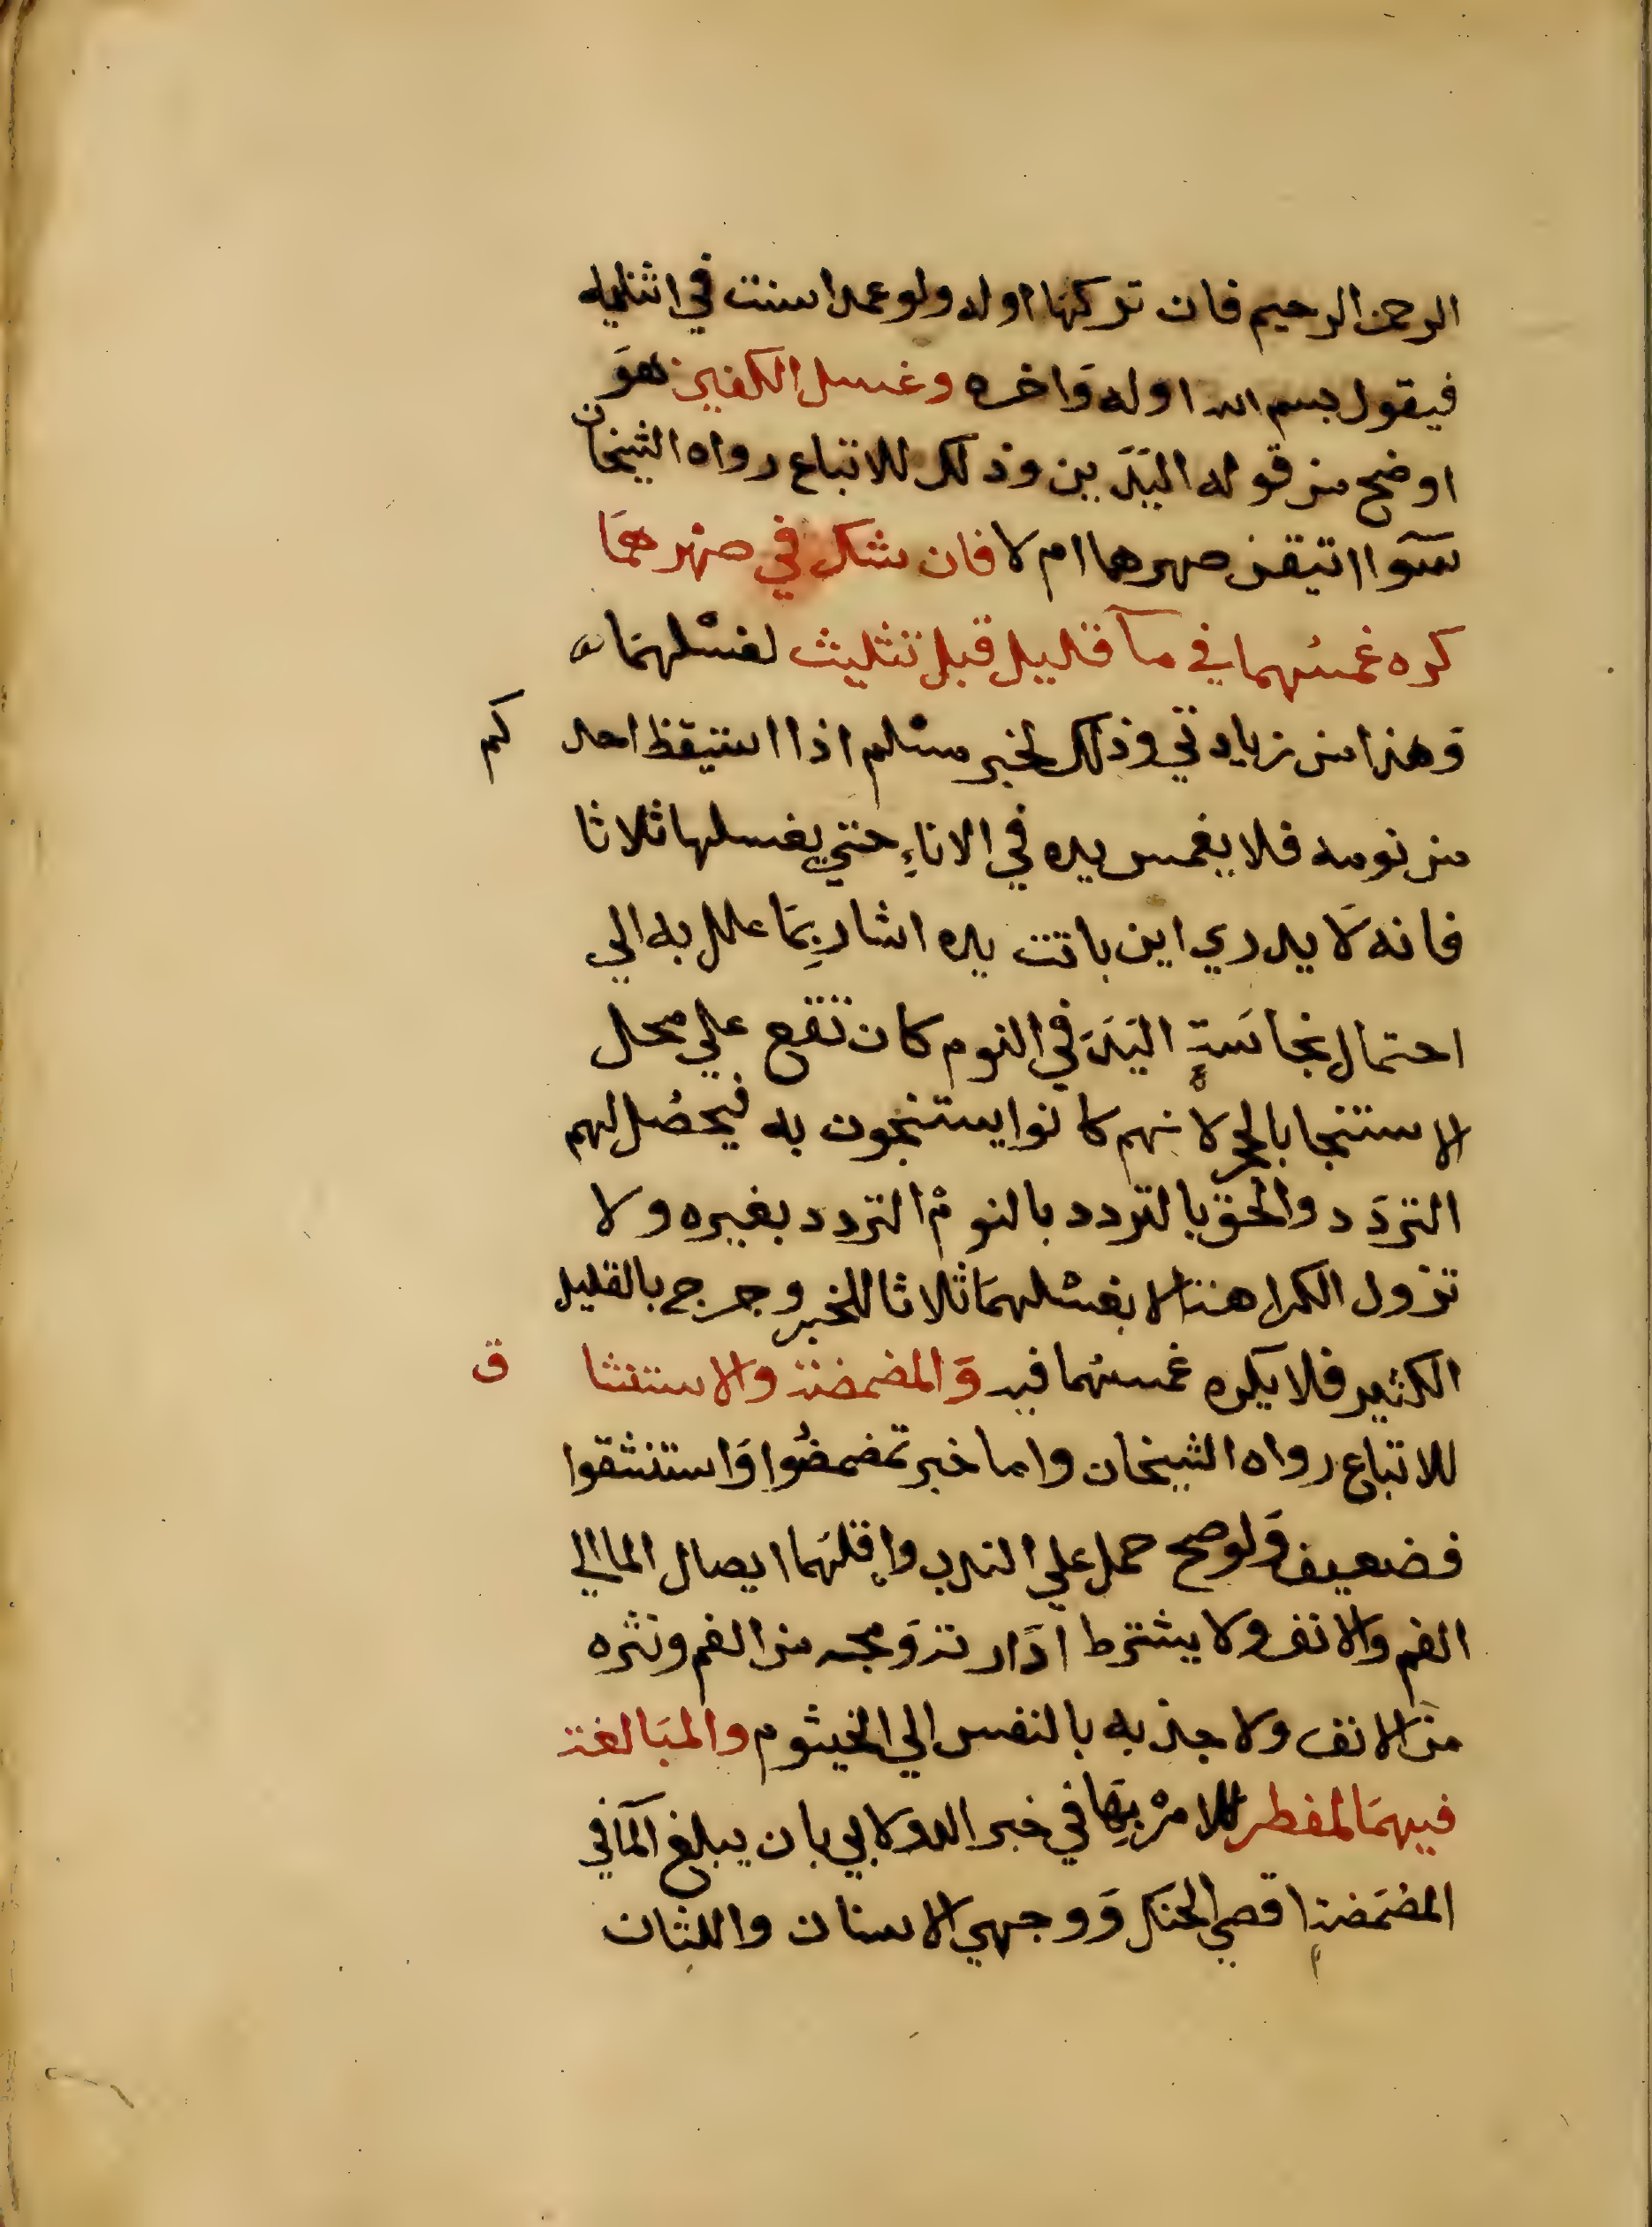 الرحمن الرحيم فان تركها اوله ولو عمدا سنت في اثنايه
فيقول بسم الله اوله وَاخره وغسل الكفين هوَ
اوضح من قوله اليَدَين وذلك للاتباع رواه الشيخان
سَوآ اتيقن طهرهما ام لا فان شك في طهرهمَا
كره غمسُهما في مآ قليل قبل تثليث لغسْلهمَا
وَهذا من زيادتي وذلك لخبر مسْلم اذا استيقظ احدكم
من نومه فلا يغمس يده في الاناءِ حتي يغسلها ثلاثا
فانه لَا يدري اين باتت يده اشار بِمَا علل به الي
احتمال نجاسَةِ اليَدَ في النوم كان تقع علي محل
الاستنجا بالحجر لانهم كانوا يستنجون به فيحصُل لهم
التردَد والحق بالتردد بالنومْ التردد بغيره ولا
تزول الكراهة الا بغسْلهمَا ثلاثا للخبر وخرج بالقليل
الكثير فلا يكره غمسُهما فيه وَالمضمضة والاستنشاق
للاتباع رواه الشيخان واما خبر تمضمضُوا وَاستنشقوا
فضعيف وَلو صح حمل علي الندب واقلهَما ايصال الما الي
الفم والانف ولا يشترط ادَارته وَمجه من الفم ونثره
منَ الانف ولا جذبه بالنفس الي الخيشوم والمبَالغة
فيهمَا لمفطر للامْر بِهَا في خبر الدولابي بان يبلغ المآ في
المضمَضةِ اقصي الحنك وَوجهي الاسنان واللثات